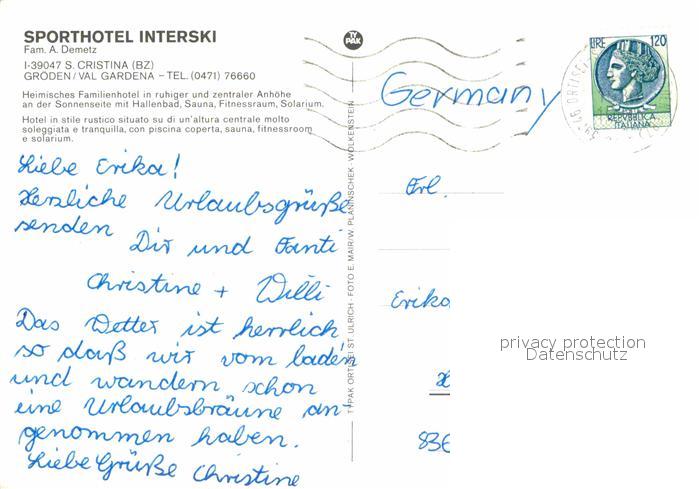 SPORTHOTEL INTERSKI
Fam. A. Demetz
I-39047 S. CRISTINA (BZ)
GRÖDEN/VAL GARDENA – TEL. (0471) 76660
Heimisches Familienhotel in ruhiger und zentraler Anhöhe
an der Sonnenseite mit Hallenbad, Sauna, Fitnessraum, Solarium.
Hotel in stile rustico situato su di un'altura centrale molto
soleggiata e tranquilla, con piscina coperta, sauna, fitnessroom
e solarium.
Liebe Erika!
Herzliche Urlaubsgrüße
senden
Dir und Fanti
Christine + Willi
Das Wetter ist herrlich
so daß wir vom baden
und wandern schon
eine Urlaubsbräune an-
genommen haben.
Liebe Grüße Christine
TY PAK
TYPAK ORTISEI ST. ULRICH - FOTO E. MAIR/W. PLANINSCHEK - WOLKENSTEIN
Germany
LIRE 120
REPVBBLICA
ITALIANA
Frl.
Erika
836
privacy protection
Datenschutz